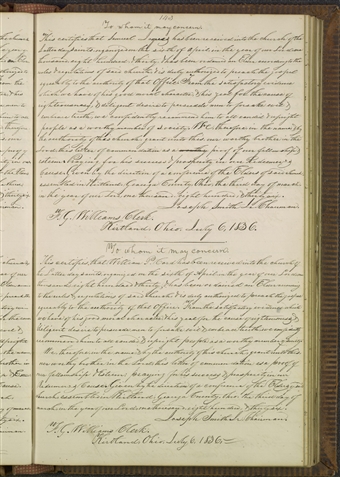 143
To whom it may concern
This certifies that Samuel has been received into the church of the
Latter day Saints organized on the sixth of April in the year of our Lord one
thousand eight hundred & thirty & has been ordained an Elder according to the
rules & regulations of said church & is duly authorized to preach the gospel
agreeably to the authority of that Office. From the satisfactory evidence
which we have of his good moral character & his zeal for the cause of
righteousness & diligent desire to persuade men to forsake evil &
embrace truth we confidently recommend him to all candid & upright
people as a worthy member of society. We therefore in the name & by
the authority of this church grant unto this our worthy brother in the
Lord this letter of commendation as a proof of our fellowship &
esteem Praying for his success & prosperity in our Redeemer's
cause. Given by the direction of a conference of the Elders of said church
assembled in Kirtland Geauga County Ohio the third day of March
in the year of our Lord one thousand eight hundred & thirty six.
Joseph Smith Jr Chairman
F. G. Williams Clerk.
Kirtland Ohio July 6, 1836.
To whom it may concern
This certifies that William has been received into the church of
the Latter day Saints organized on the sixth of April in the year of our Lord
one thousand eight hundred & thirty & has been ordained an Elder according
to the rules & regulations of said church & is duly authorized to preach the gospel
agreeably to the authority of that office. From the satisfactory evidence which
we have of his good moral character & his zeal for the cause of righteousness &
diligent desire to persuade men to forsake evil & embrace truth we confidently
recommend him to all candid & upright people as a worthy member of society.
We therefore in the name & by the authority of this church grant unto this
our worthy brother in the Lord this letter of commendation as a proof of
our fellowship & esteem praying for his success & prosperity in our
Redeemer's cause. Given by the direction of a conference of the Elders of said
church assembled in Kirtland Geauga County Ohio the third day of
March in the year of our Lord one thousand eight hundred & thirty six.
Joseph Smith Jr Chairman
F. G. Williams Clerk.
Kirtland Ohio July 6 1836.